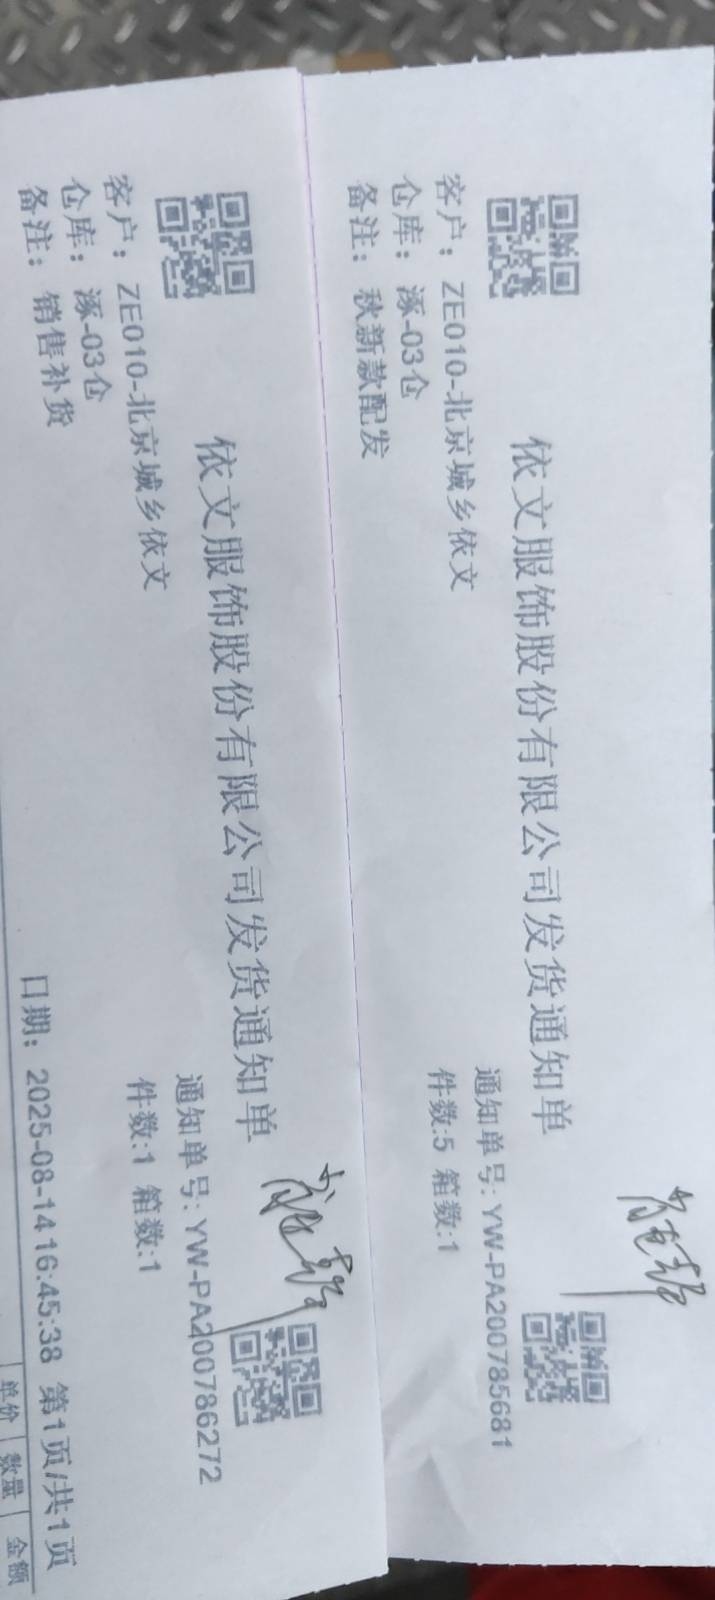 依文服饰股份有限公司发货通知单
通知单号: YW-PA200785681
客户: ZE010-北京城乡依文
件数:5 箱数:1
仓库: 涿-03仓
备注: 秋新款配发
依文服饰股份有限公司发货通知单
通知单号: YW-PA200786272
客户: ZE010-北京城乡依文
件数:1 箱数:1
仓库: 涿-03仓
备注: 销售补货
日期: 2025-08-14 16:45:38 第1页/共1页
单价 数量 金额